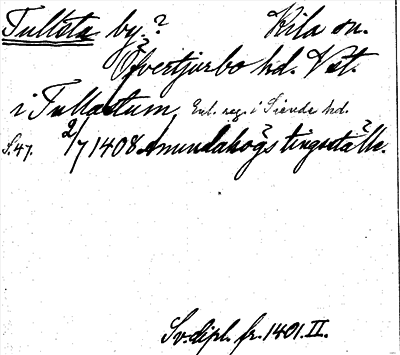 Tullsta by? Kila sn.
Övertjurbo hd. Vst.
i Tullastum, Enl. reg. i Simde hd.
S. 47. 2/7 1408 Amundahögs tingställe.
Sv. dipl. fr. 1401. II.